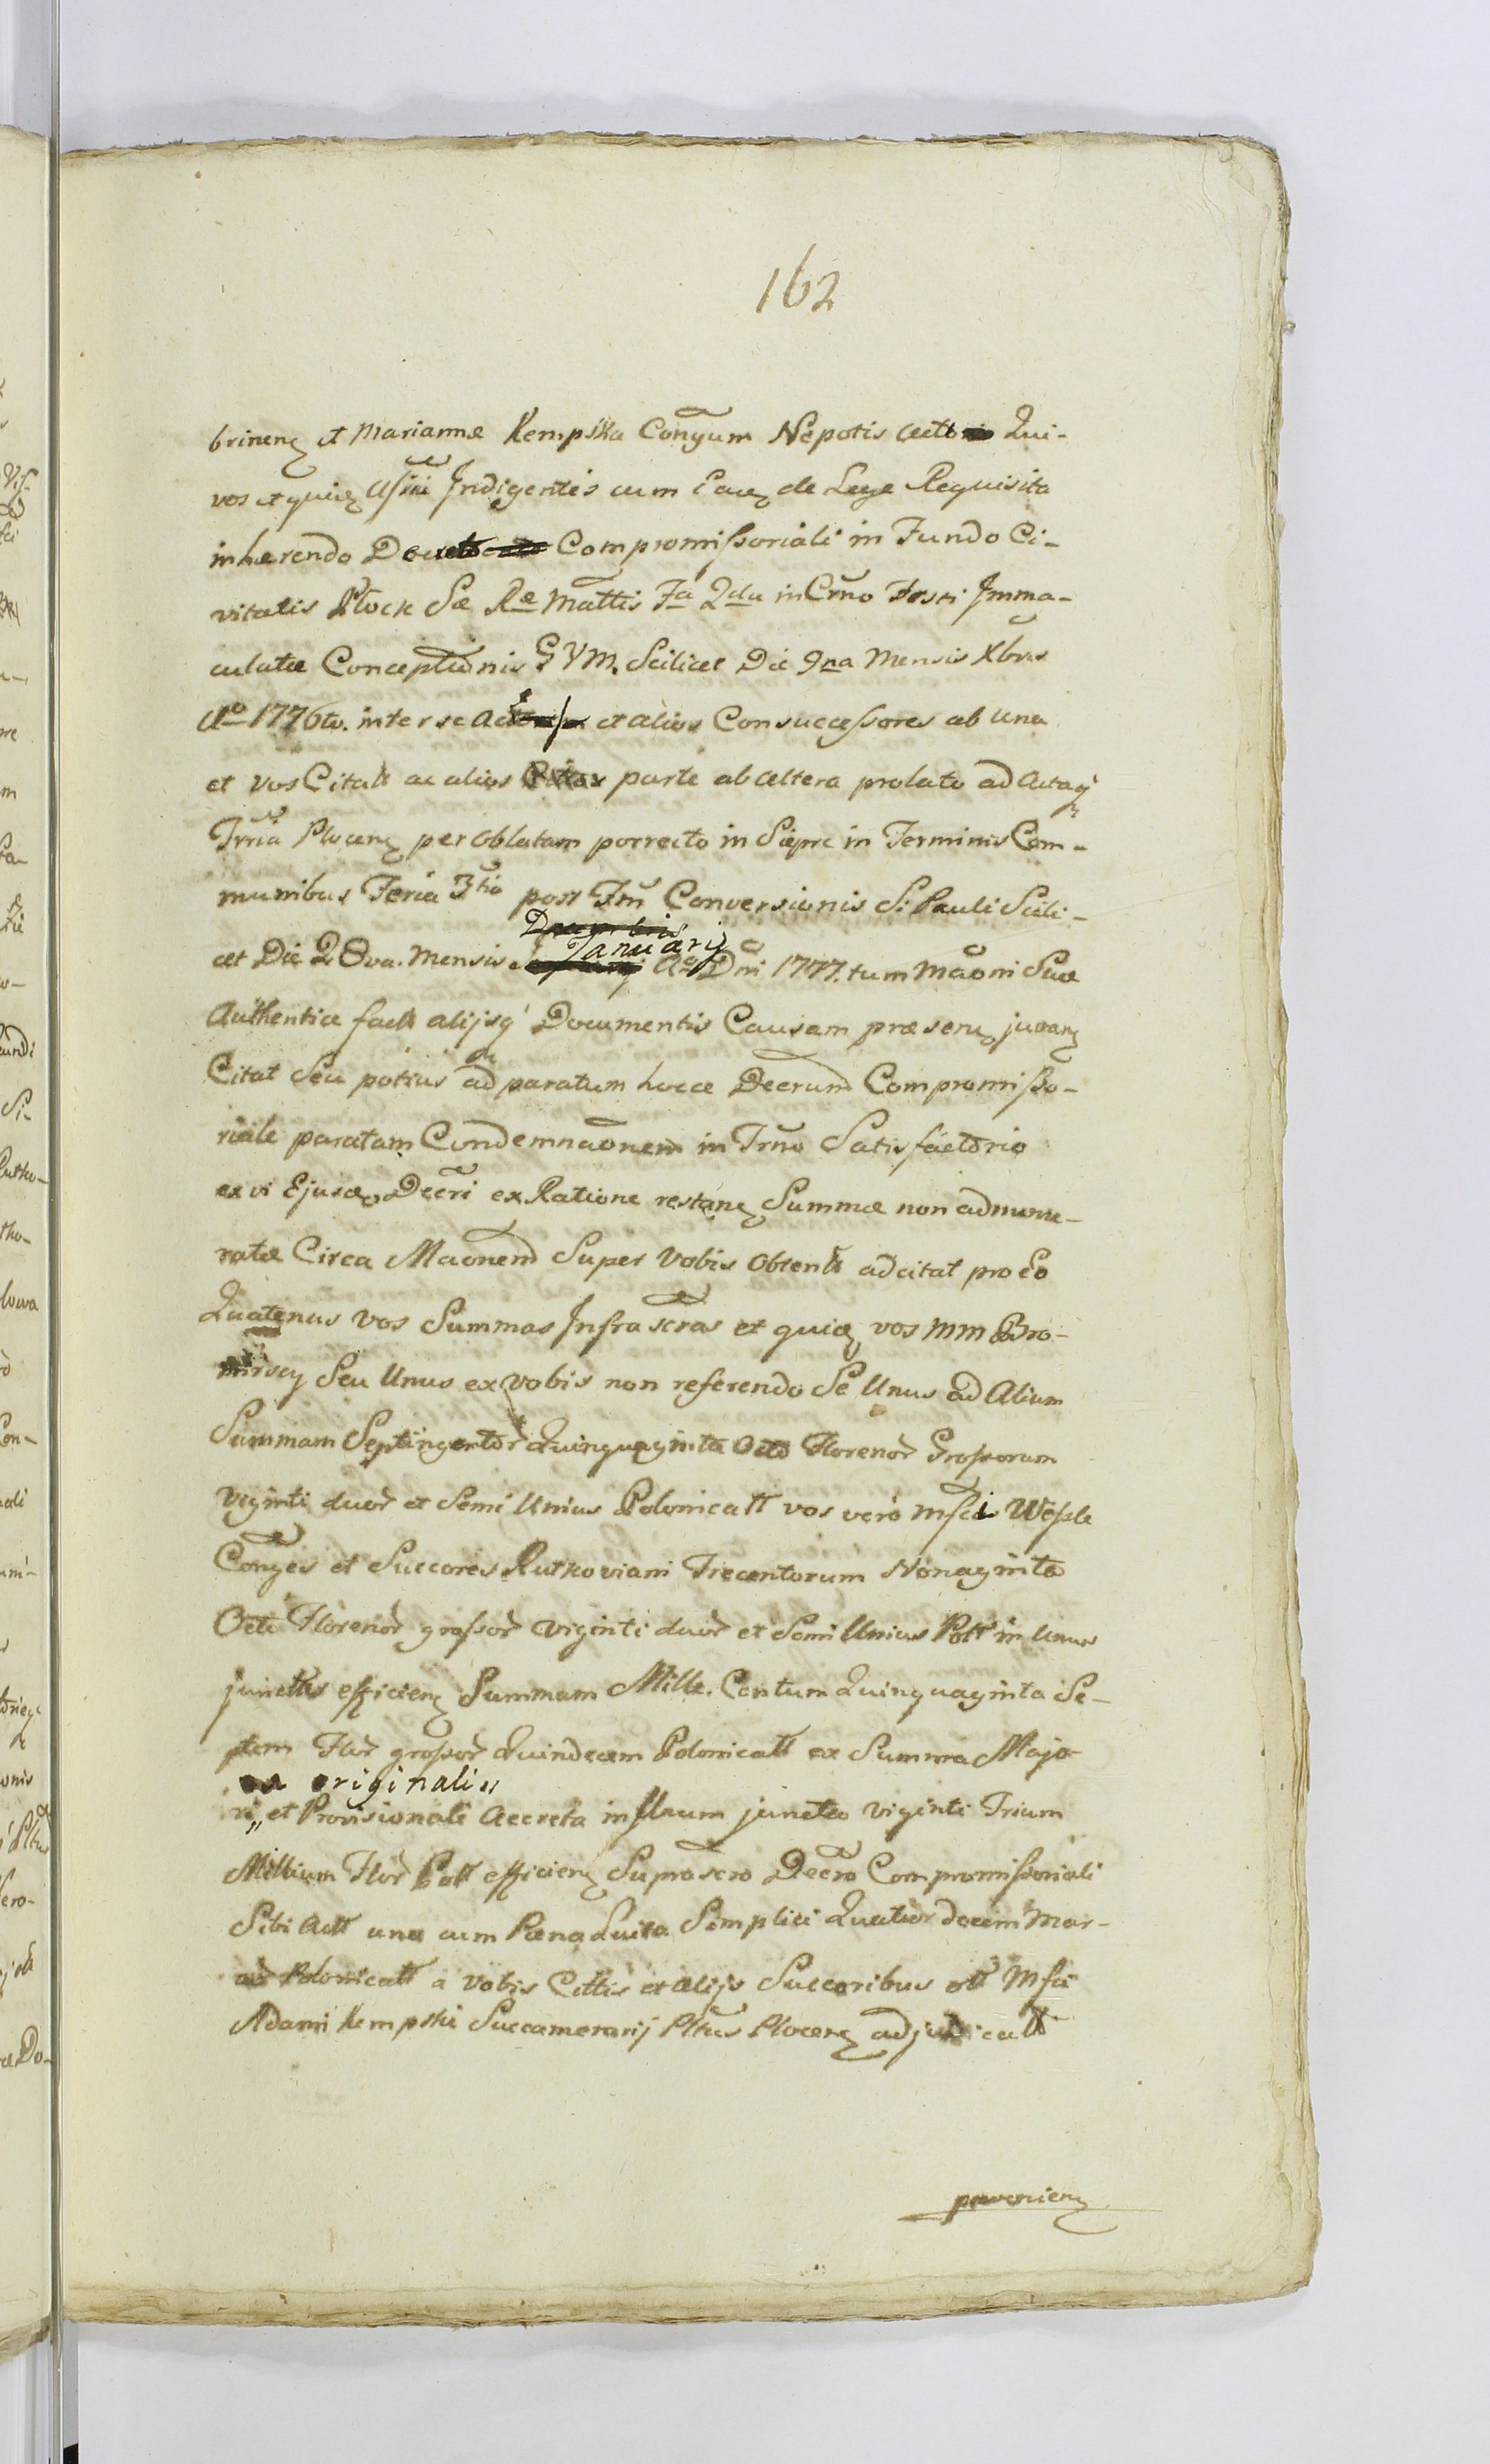 162
brinenς et Mariannæ Kempska Conỹum Nepotis Actt Qui-
vos et quiaς Indigentes cum Eaς de Lege Requisita
inhærendo Decreto Compromissoriali in Fundo Ci-
vitatis Płock Sæ Ræ Mattis Fa 2da in Crño Festi Imma-
culatæ Conceptionis BVM. Scilicet Die 9na Mensis Xbris
Ao 1776to. inter se et alios Consuccessores ab una
et vos Citatt ac alios parte ab altera prolato ad Actaq̃
Trña Plocenς per Oblatam porrecto in Sieprc in Terminis Com-
munibus Feria 3tia post Fm̃ Conversionis S. Pauli Scili-
Januarij
cet Die 28va. Mensis Ao Dni 1777. tum Mãoni Suæ
Authenticæ factt alijsq̃ Documentis Causam præsenς juvanς
Citat Seu potius ad paratum hocce Decrum Compromisso-
riale paratam Condemnãonem in Trño Satisfactorio
ex vi Ejusdς Decri ex Ratione restanς Summæ non adnume-
ratæ Circa Mãonem Super Vobis Obtentt adcitat pro Eo
Quatenus Vos Summas Infrascras et quiaς vos MM Bro-
mirscy Seu Unus ex vobis non referendo Se Unus ad Alium
Summam Septingentor Quinquaginta Octo Florenor Grossorum
Viginti duor et Semi Unius Polonicatt vos vero Mfci Wessle
Conges et Succores Rutkoviani Trecentorum Nonaginta
Octo Florenor grossor Viginti duor et Semi Unius Poltt in Unum
junctis efficienς Summam Mille. Centum Quinquaginta Se-
ptem Flor grossor Quindecem Polonicatt ex Summa Majo-
ex originali „
ri „ et Provisionali Accreta in Unum juncta Viginti Trium
Millium Flor Poltt efficienς Suprascro Decro Compromissoriali
Sibi Actt una cum Pæna Luita Simplici Quatuordecem Mar-
car Polonicatt a Vobis Cittis et alijs Succoribus ott Mfci
Adami Kempski Succamerarij Pltus Plocenς adjudicatt
provenienς